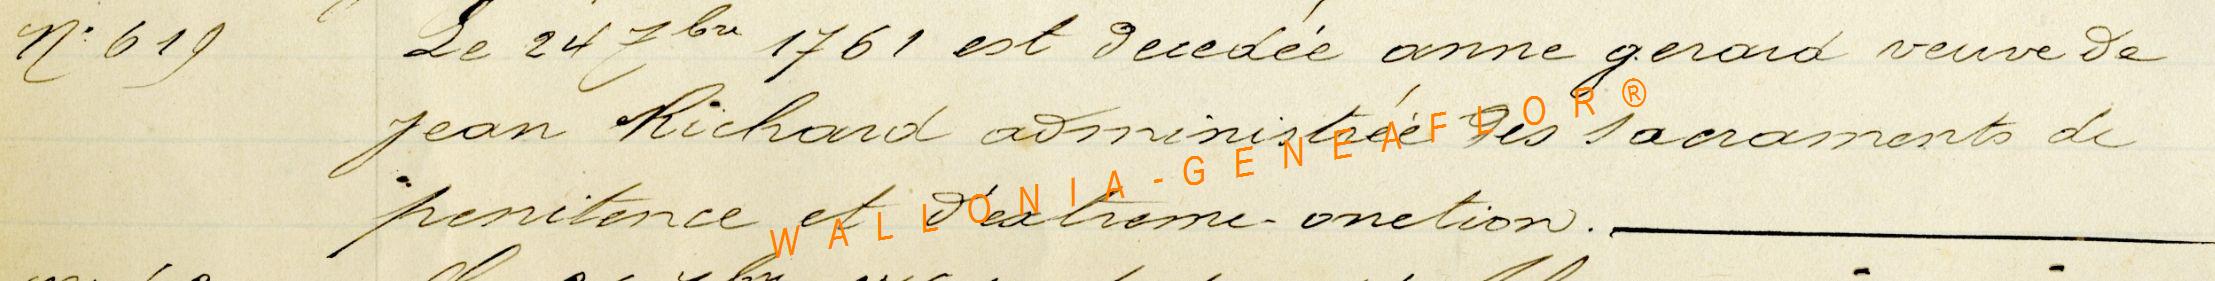 N° 619 Le 24 7bre 1761 est decedée anne gerard veuve de
jean Richard administrée des sacraments de
penitence et d'extreme-onction.
WALLONIA-GENEAFLOR®